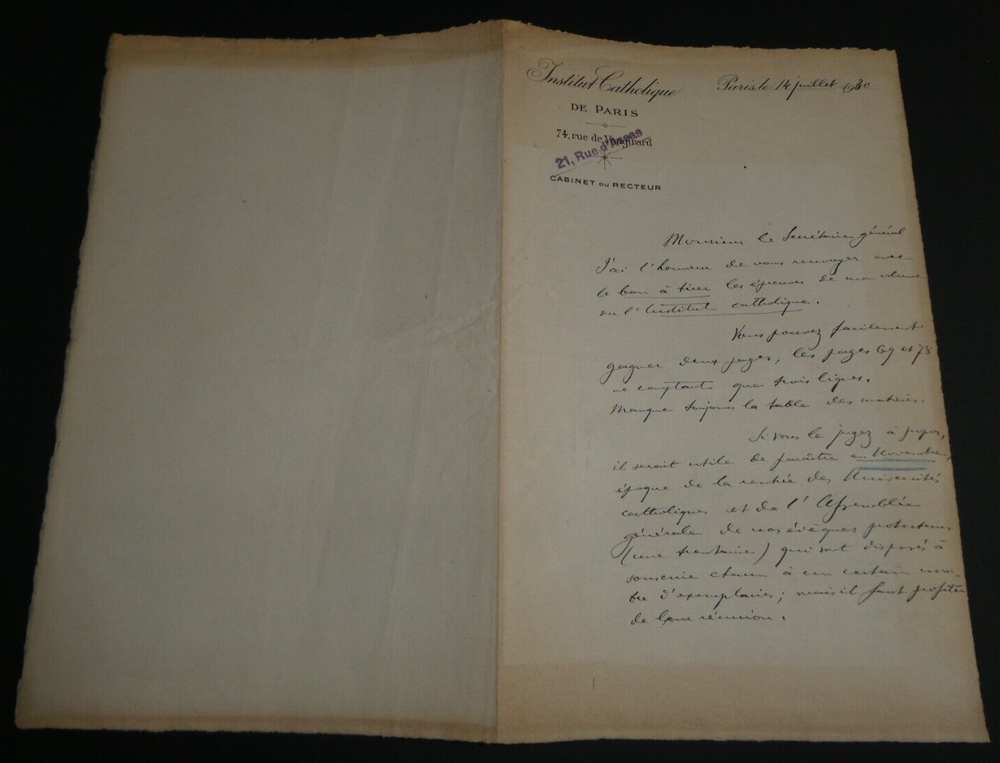 Institut Catholique
DE PARIS
74, rue de Vaugirard
21, Rue d'Assas
CABINET DU RECTEUR
Paris, le 14 juillet 1930
Monsieur le Secrétaire général
J'ai l'honneur de vous renvoyer avec
le bon à tirer les épreuves de mon volume
sur l'Institut catholique.
Vous pouvez facilement
gagner deux pages, les pages 69 et 78
ne comptant que trois lignes.
Manque toujours la table des matières.
Si vous le jugez à propos,
il serait utile de paraître en Novembre,
époque de la rentrée des Universités
catholiques et de l'Assemblée
générale de nos évêques protecteurs
(une trentaine) qui sont disposés à
souscrire chacun à un certain nom-
bre d'exemplaires; mais il faut profiter
de leur réunion.